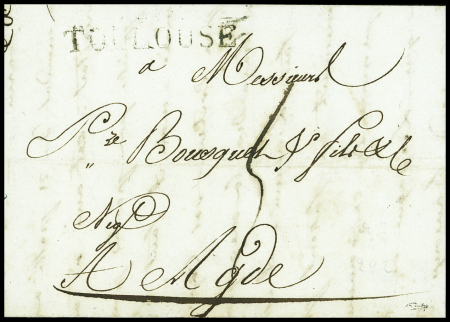 TOULOUSE
a Messieurs
P.re Bousquet & fils & Cie
Negts
A Agde